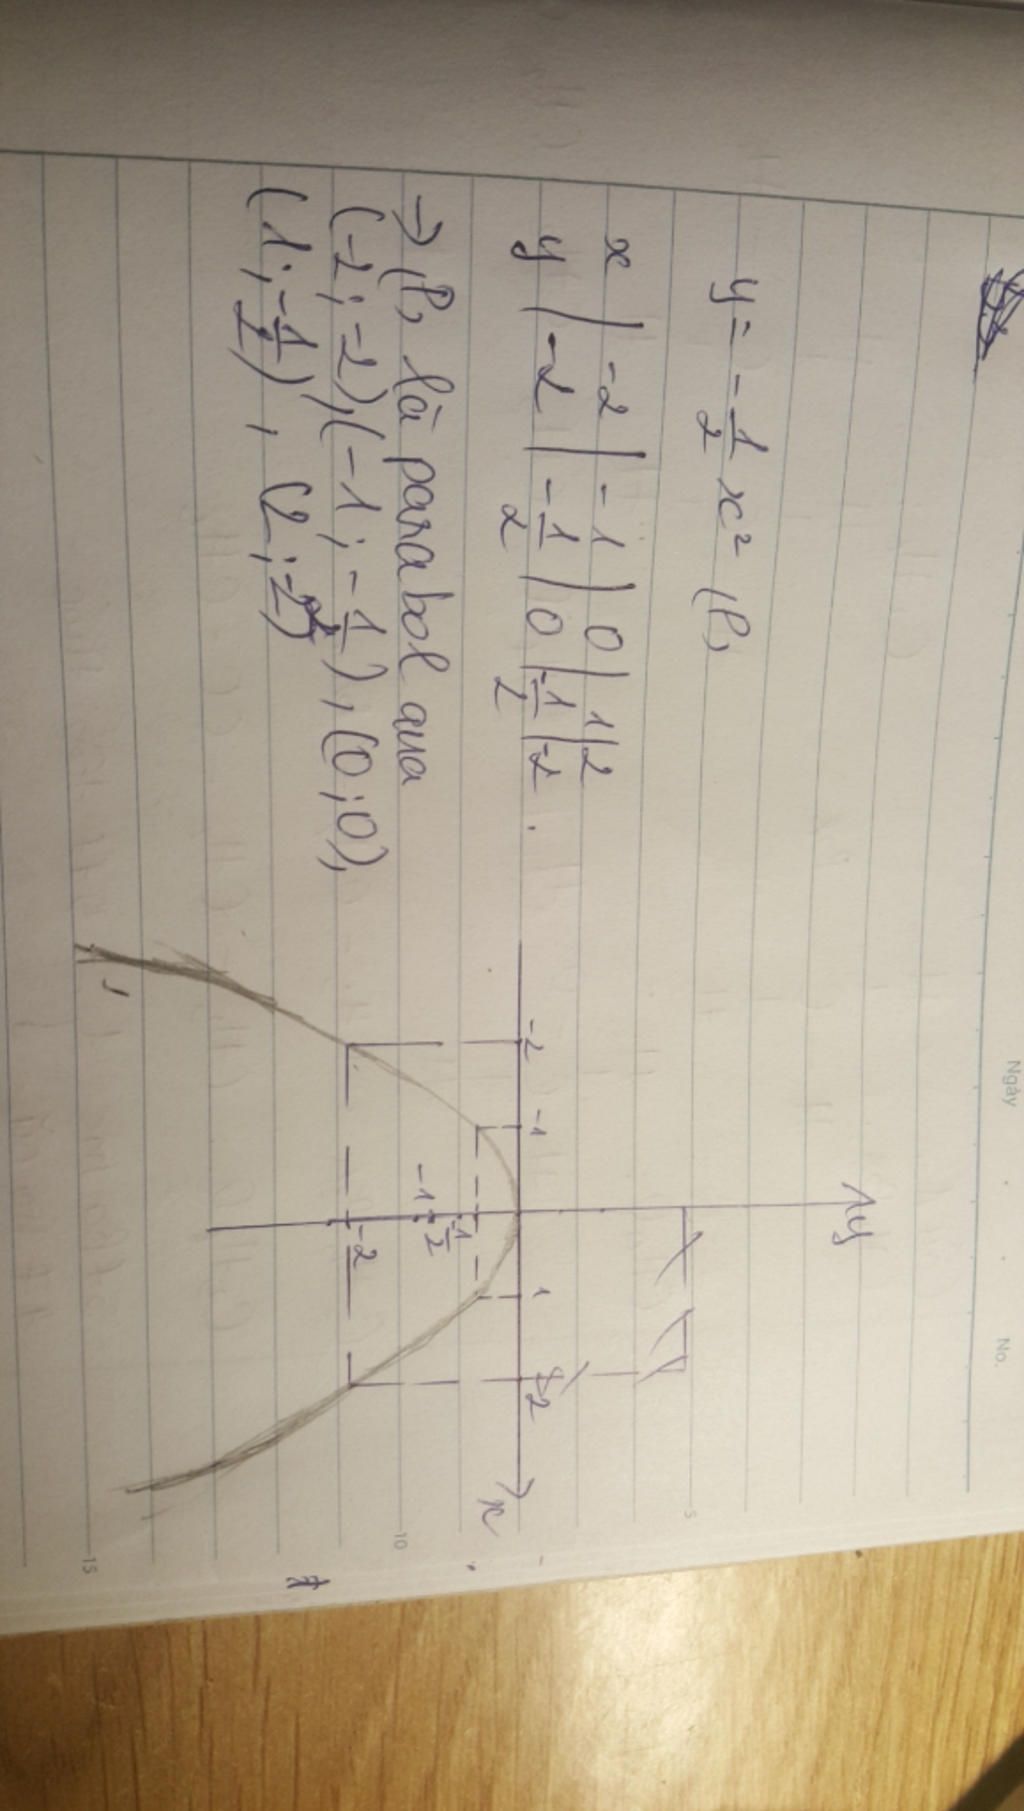 Ngày
No.
y = -1/2 x² (P)
x | -2 | -1 | 0 | 1 | 2
y | -2 | -1/2 | 0 | -1/2 | -2
→ (P) là parabol qua
(-2; -2), (-1; -1/2), (0; 0),
(1; -1/2), (2; -2)
y
-2 -1 1 2 x
-1/2
-1
-2
5
10
15